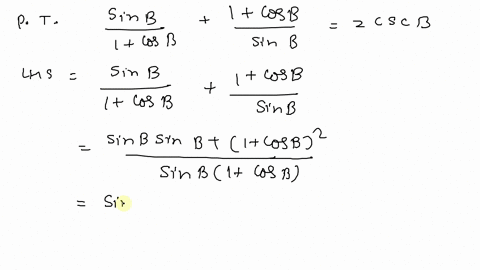 P. T. Sin B / 1 + cos B + 1 + cos B / sin B = 2 csc B
LHS = Sin B / 1 + cos B + 1 + cos B / Sin B
= Sin B Sin B + (1 + cos B)² / Sin B (1 + cos B)
= Sin